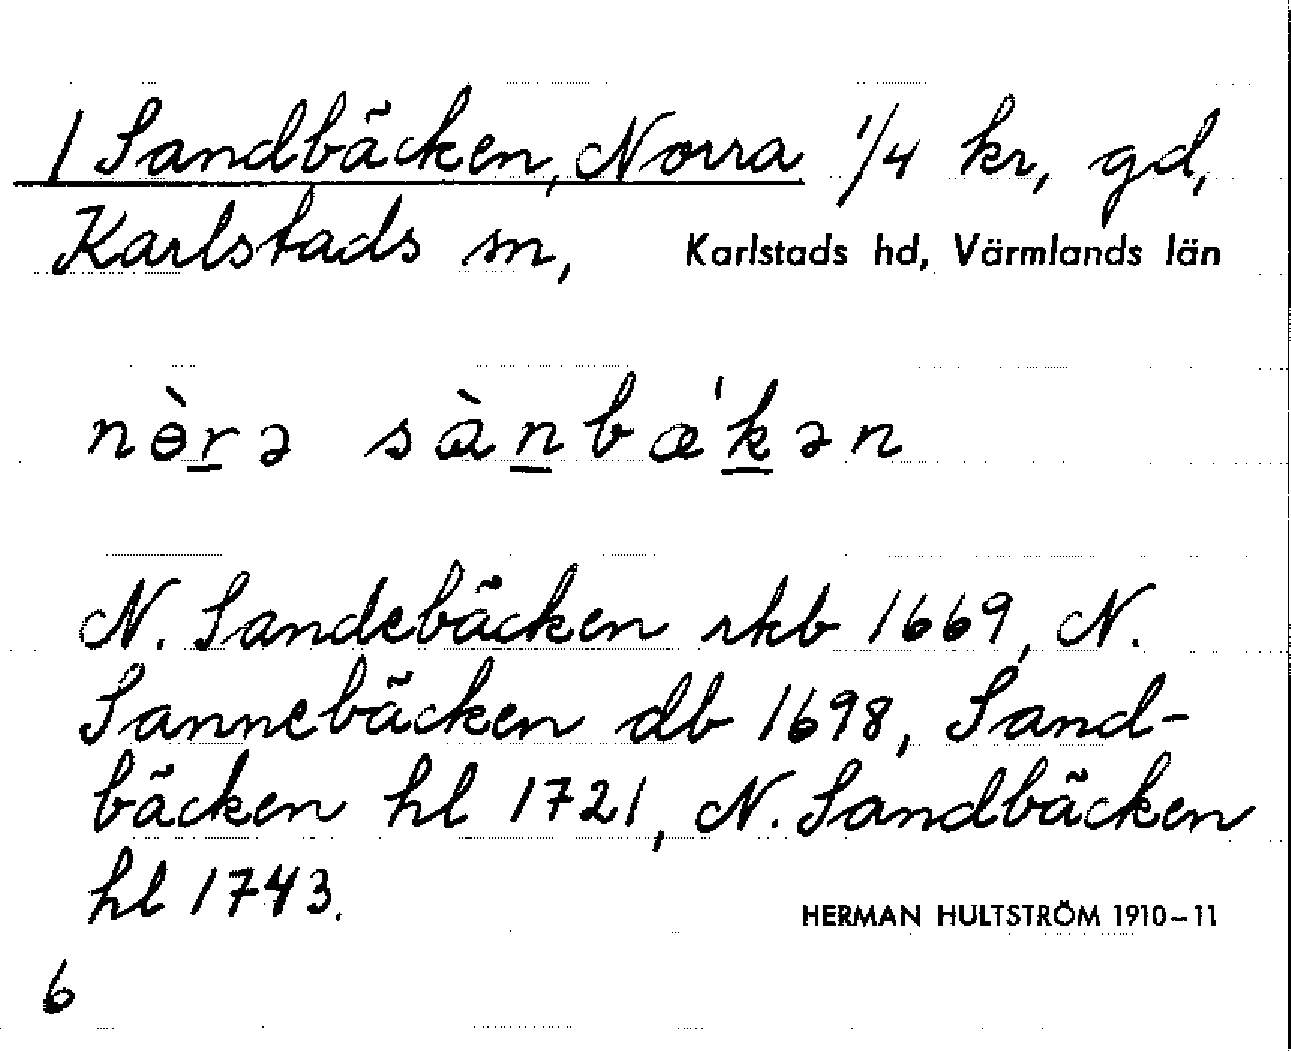 1 Sandbäcken, Norra 1/4 kr, gd,
Karlstads sn, Karlstads hd, Värmlands län
nɵ̀r̲ə sàn̲bæ'k̲ən
N. Sandebäcken rkb 1669, N.
Sannebäcken db 1698, Sand-
bäcken hl 1721, N. Sandbäcken
hl 1743.
HERMAN HULTSTRÖM 1910-11
6